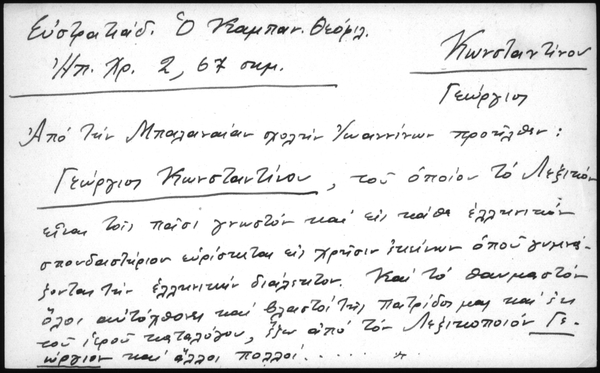 Εὐστρατιάδ. Ὁ Καμπαν. Θεόφιλ.
Ἠπ. Χρ. 2, 67 σημ.
Κωνσταντίνου
Γεώργιος
Ἀπὸ τὴν Μπαλαναίαν σχολὴν Ἰωαννίνων προῆλθεν:
Γεώργιος Κωνσταντίνου, τοῦ ὁποίου τὸ Λεξικὸν
εἶναι τοῖς πᾶσι γνωστὸν καὶ εἰς κάθε ἑλληνικὸν
σπουδαστήριον εὑρίσκεται εἰς χρῆσιν ἐκείνων ὁποῦ γυμνά-
ζονται τὴν ἑλληνικὴν διάλεκτον. Καὶ τὸ θαυμαστὸν
ὅλοι αὐτόχθονες καὶ βλαστοὶ τῆς πατρίδος μας καὶ ἐκ
τοῦ ἱεροῦ καταλόγου, ἔξω ἀπὸ τὸν Λεξικοποιὸν Γε-
ώργιον καὶ ἄλλοι πολλοί.....